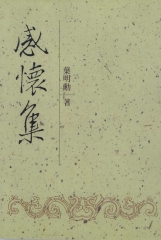 感懷集
葉明勳 著